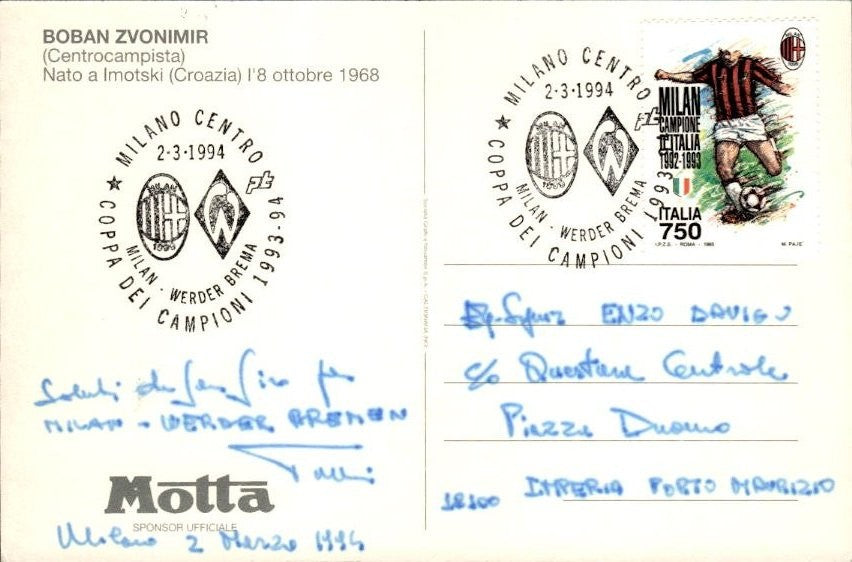 BOBAN ZVONIMIR
(Centrocampista)
Nato a Imotski (Croazia) l'8 ottobre 1968
MILANO CENTRO
2-3-1994
pt
1899
MILAN - WERDER BREMA
★ COPPA DEI CAMPIONI 1993-94
Saluti da San Siro per
MILAN - WERDER BREMEN
Motta
SPONSOR UFFICIALE
Milano 2 Marzo 1994
MILANO CENTRO
2-3-1994
pt
1899
MILAN - WERDER BREMA
★ COPPA DEI CAMPIONI 1993
MILAN
CAMPIONE
D'ITALIA
1992-1993
ITALIA
750
I.P.Z.S. - ROMA - 1993
ENZO DAVIGO
c/o Questura Centrale
Piazza Duomo
18100 IMPERIA PORTO MAURIZIO